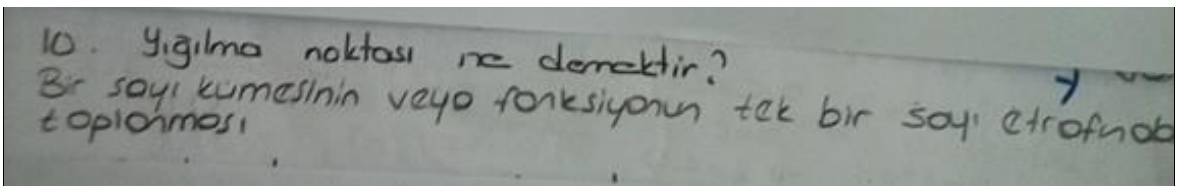 10. Yığılma noktası ne demektir?
Bir sayı kumesinin veya fonksiyonun tek bir sayı etrafında
toplanması